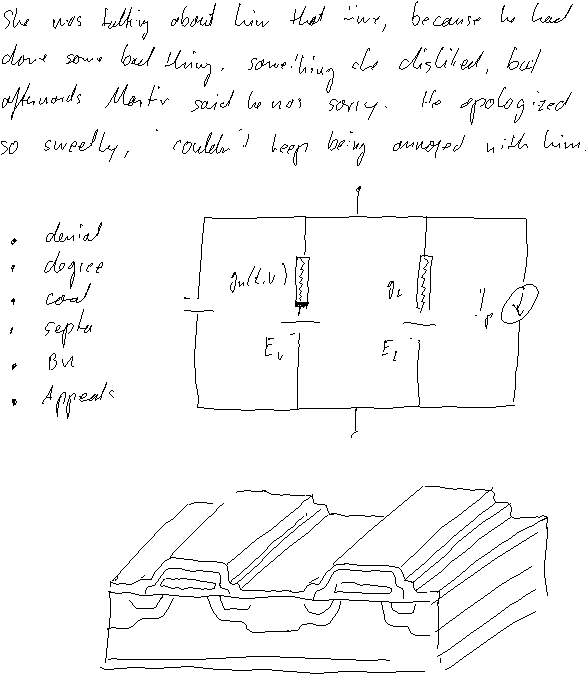 She was talking about him that time, because he had
done some bad thing, something she disliked, but
afterwards Martin said he was sorry. He apologized
so sweetly, I couldn't keep being annoyed with him.
• denial
• degree
• coral
• septa
• BM
• Appeals
gn(t,V)
gL
Ip
EL